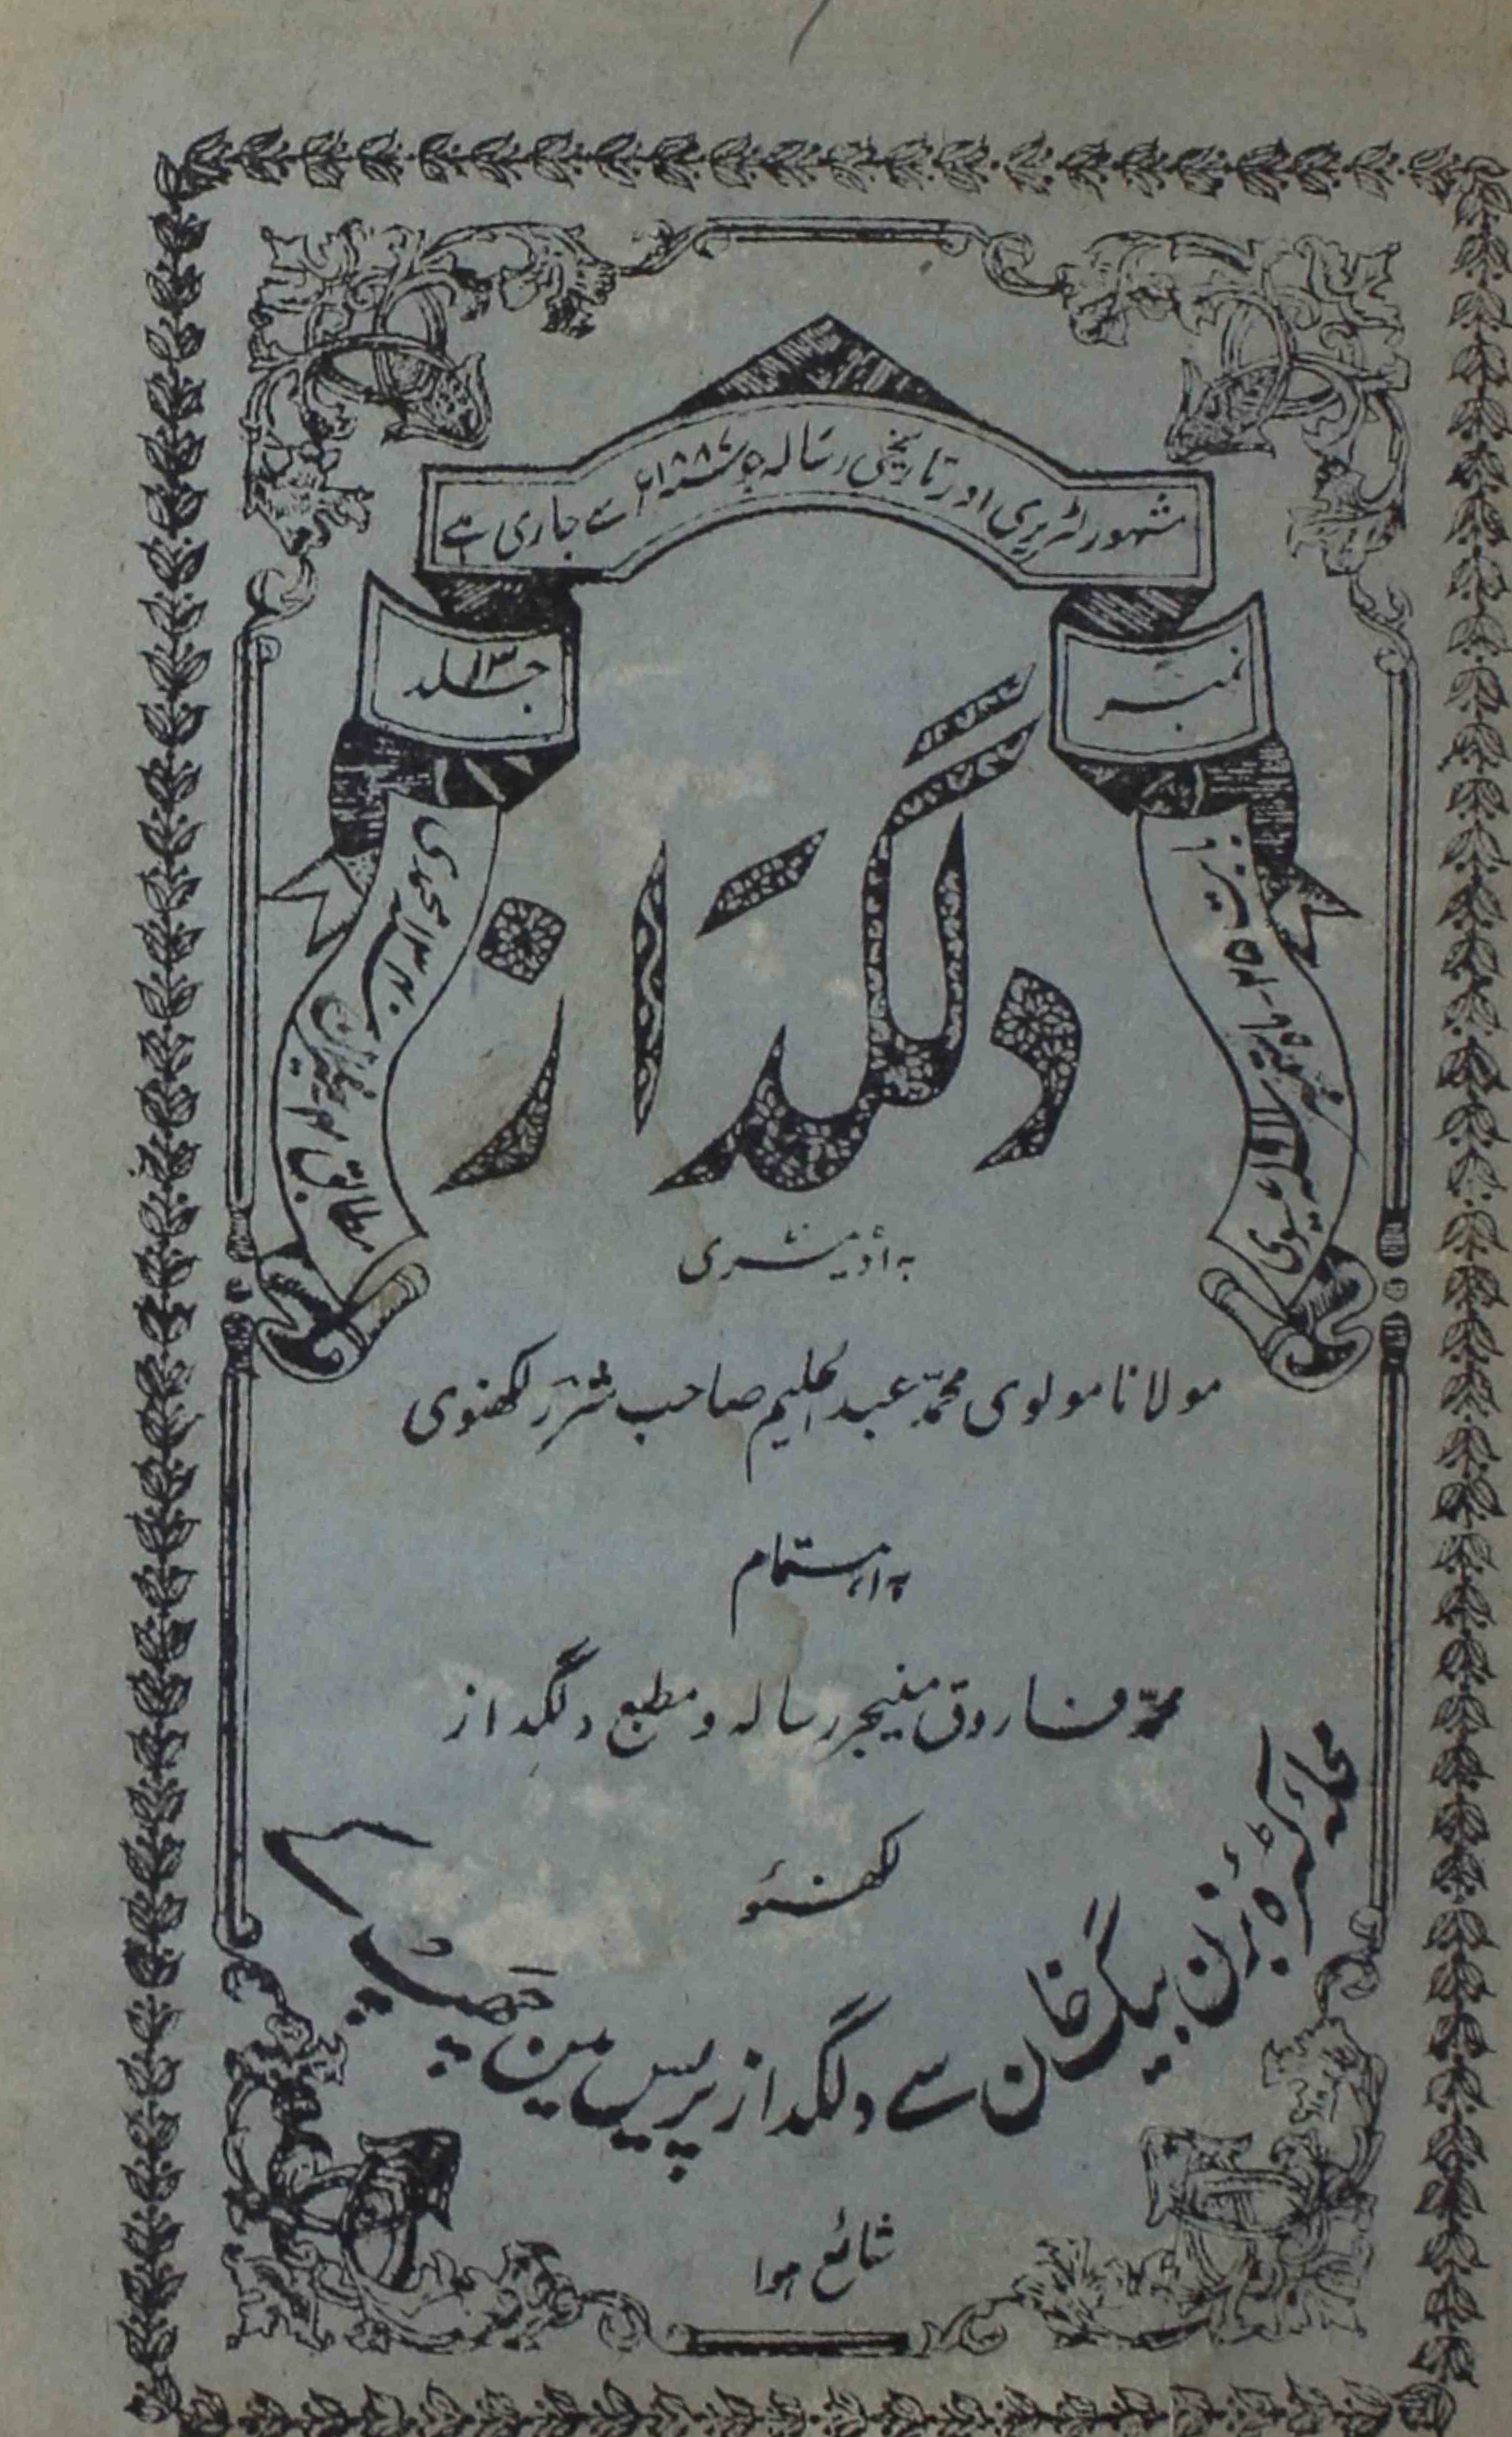 مشہور لٹریری اور تاریخی رسالہ جو ۱۸۸۷ء سے جاری ہے
نمبر
جلد ۱۳
دلگداز
مطابق ۱۳ ہجری
عیسوی
بہ اڈیٹری
مولانا مولوی محمد عبد الحلیم صاحب شرر لکھنوی
بہ اہتمام
محمد فاروق منیجر رسالہ و مطبع دلگداز
لکھنئو
محلہ کٹرہ بزن بیگ خان سے دلگداز پریس مین چھپ کے
شائع ہوا